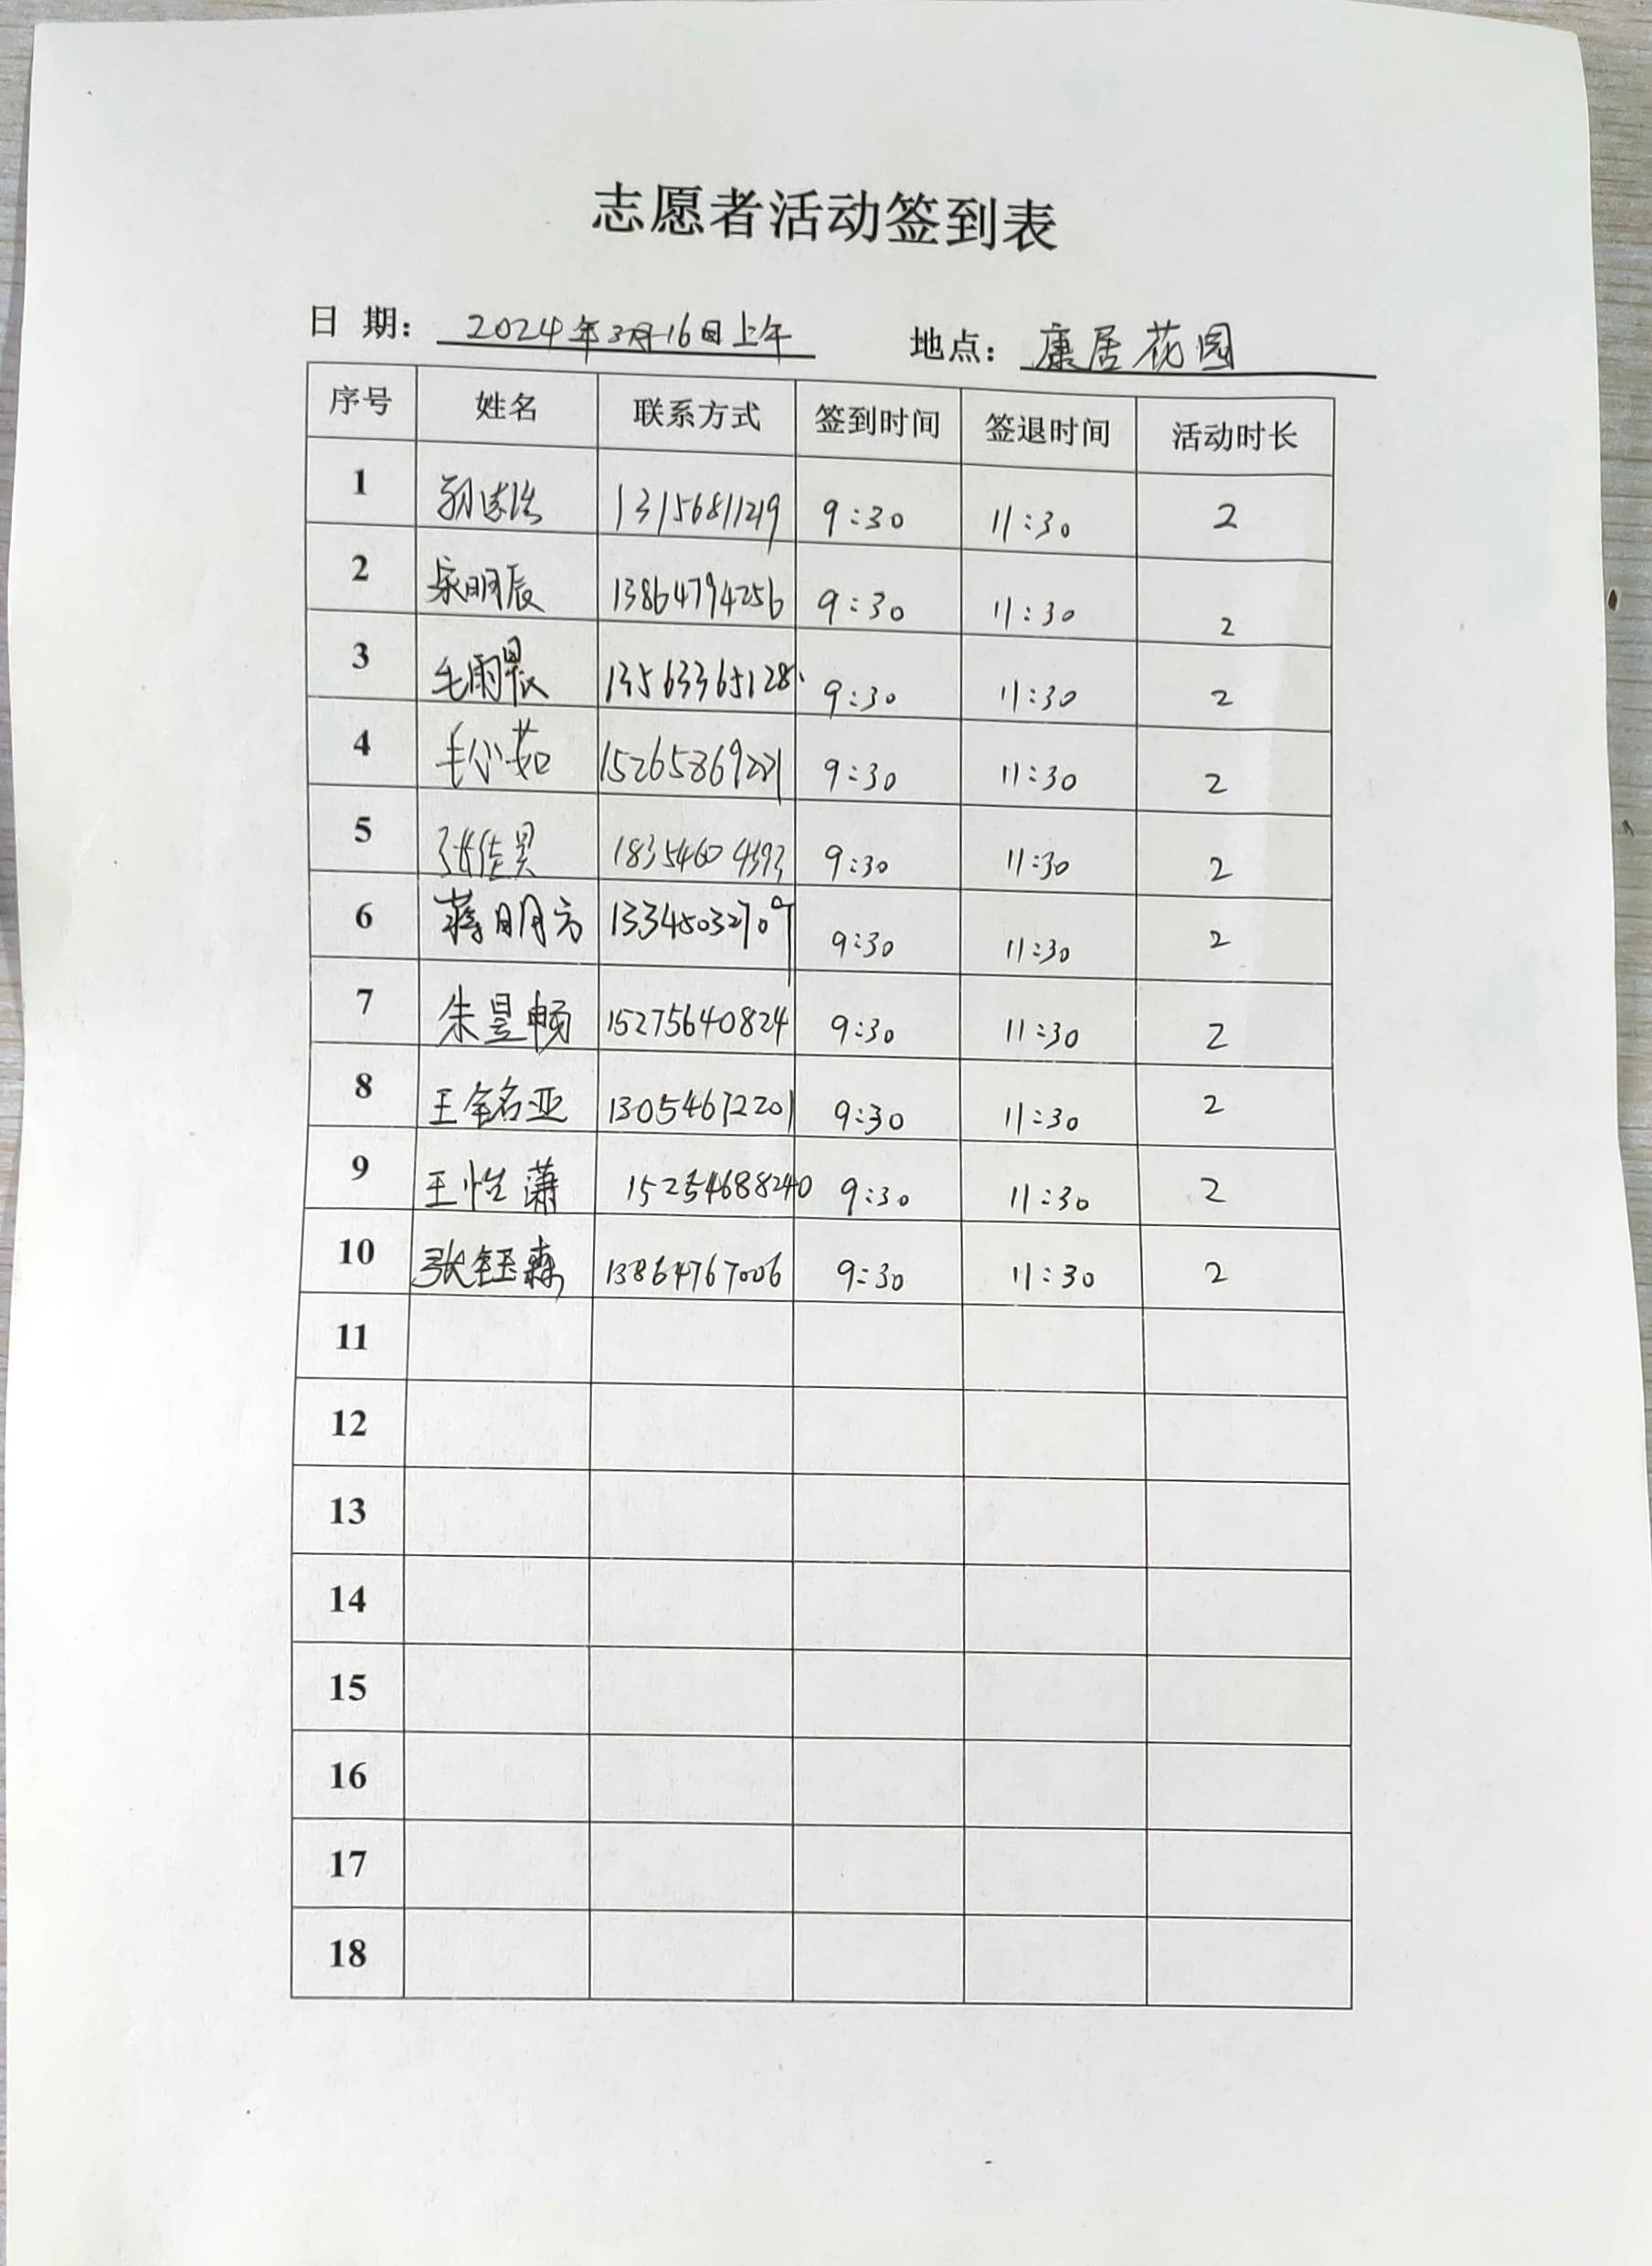 志愿者活动签到表
日 期: 2024年3月16日上午 地点: 康居花园
序号 姓名 联系方式 签到时间 签退时间 活动时长
1 13156811219 9:30 11:30 2
2 宋明辰 13864794256 9:30 11:30 2
3 毛雨晨 13563365128 9:30 11:30 2
4 毛小茹 15265869221 9:30 11:30 2
5 张佳昊 18354604393 9:30 11:30 2
6 蒋明方 13345032709 9:30 11:30 2
7 朱昱畅 15275640824 9:30 11:30 2
8 王铭亚 13054672201 9:30 11:30 2
9 王怡潇 15254688240 9:30 11:30 2
10 张钰森 13864767006 9:30 11:30 2
11
12
13
14
15
16
17
18